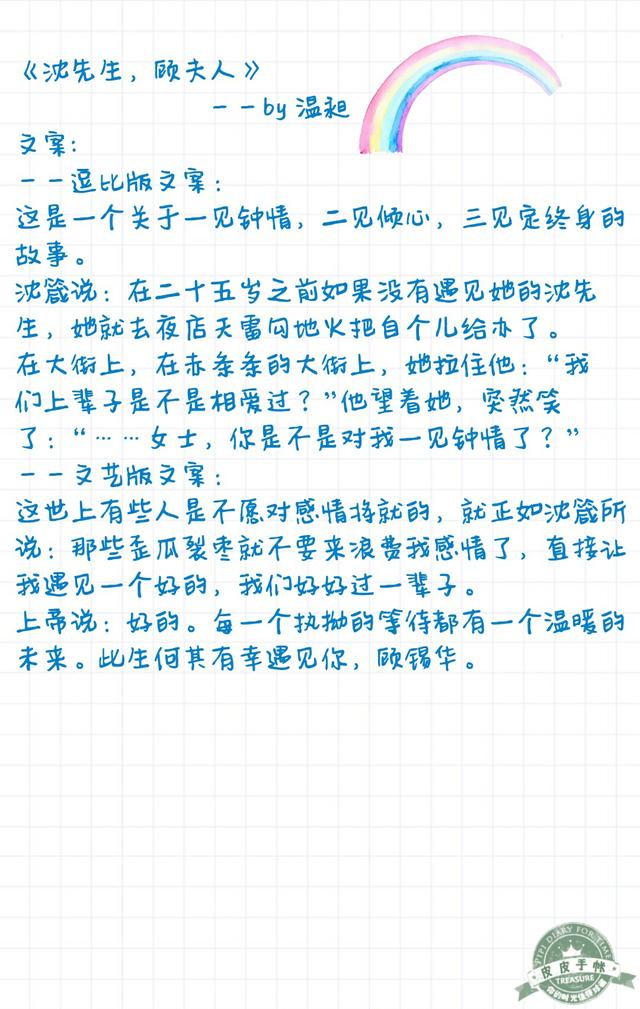 《沈先生，顾夫人》
－－by 温昶
文案：
－－逗比版文案：
这是一个关于一见钟情，二见倾心，三见定终身的
故事。
沈箴说：在二十五岁之前如果没有遇见她的沈先
生，她就去夜店天雷勾地火把自个儿给办了。
在大街上，在赤条条的大街上，她拉住他：“我
们上辈子是不是相爱过？”他望着她，突然笑
了：“……女士，你是不是对我一见钟情了？”
－－文艺版文案：
这世上有些人是不愿对感情将就的，就正如沈箴所
说：那些歪瓜裂枣就不要来浪费我感情了，直接让
我遇见一个好的，我们好好过一辈子。
上帝说：好的。每一个执拗的等待都有一个温暖的
未来。此生何其有幸遇见你，顾锡华。
PIPI DIARY FOR TIME
皮皮手帐
TREASURE